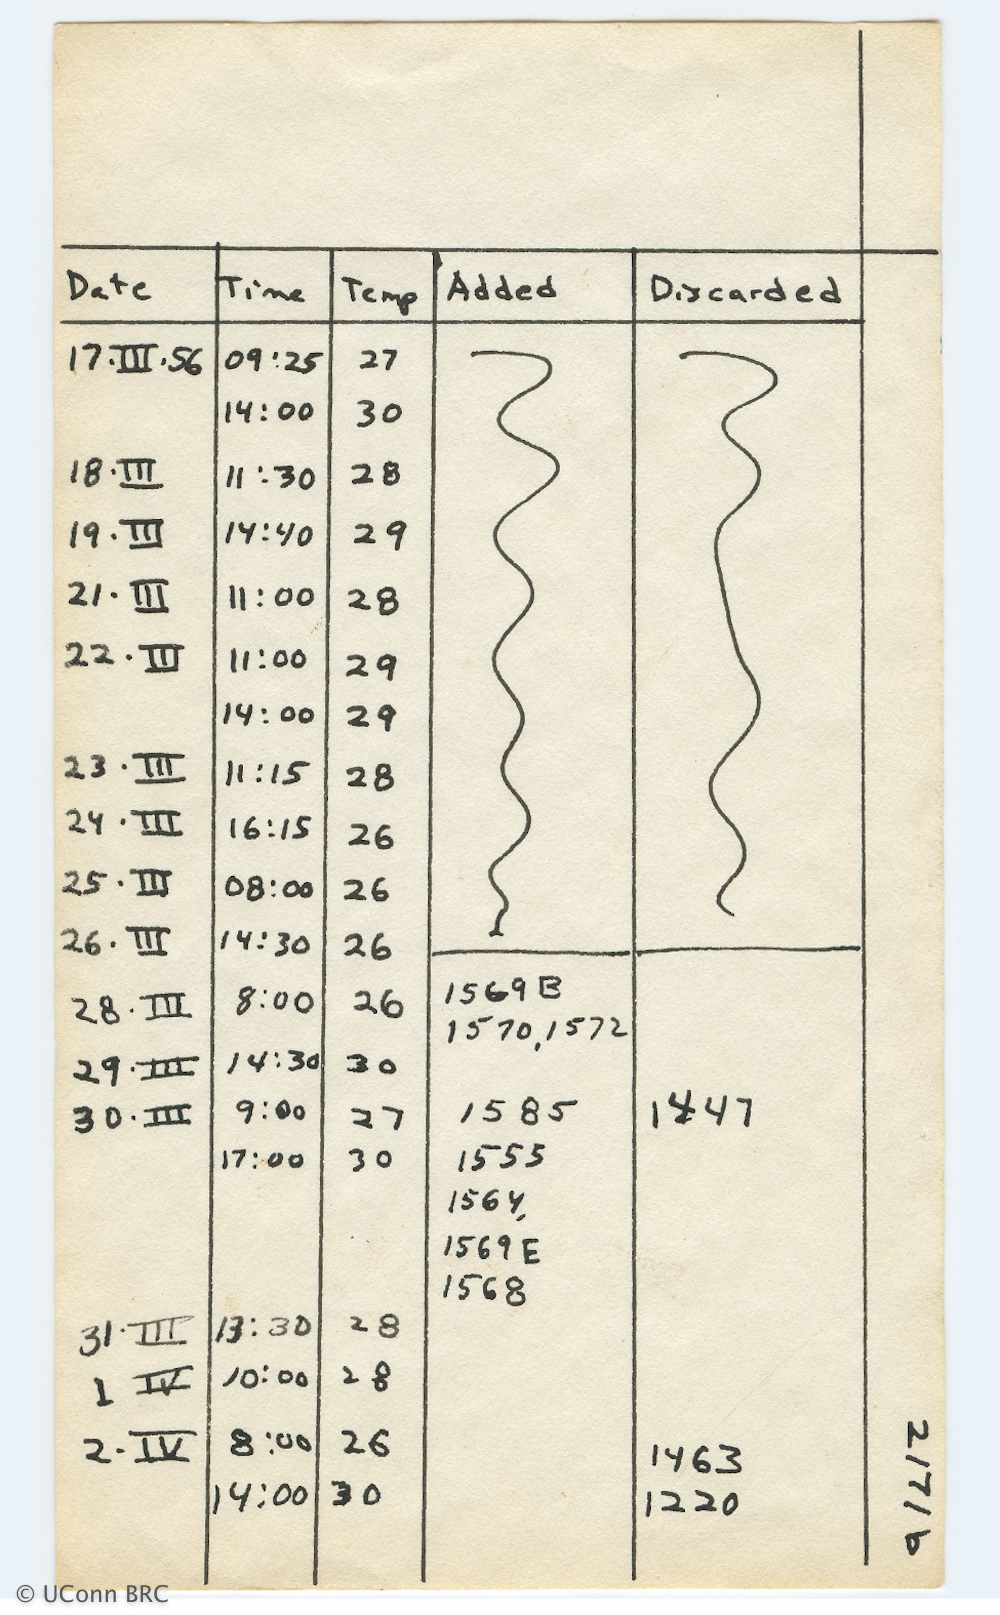 Date Time Temp Added Discarded
17.III.56 09:25 27
14:00 30
18.III 11:30 28
19.III 14:40 29
21.III 11:00 28
22.III 11:00 29
14:00 29
23.III 11:15 28
24.III 16:15 26
25.III 08:00 26
26.III 14:30 26
28.III 8:00 26 1569B
1570,1572
29.III 14:30 30
30.III 9:00 27 1585 1447
17:00 30 1555
1564,
1569E
1568
31.III 13:30 28
1 IV 10:00 28
2.IV 8:00 26 1463
14:00 30 1220
© UConn BRC